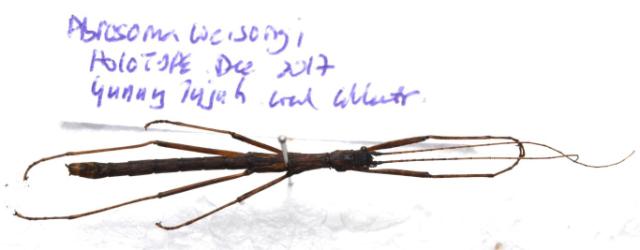 Abrosoma weisongi
HOLOTYPE Dec 2017
Gunung Jujuh local collector.